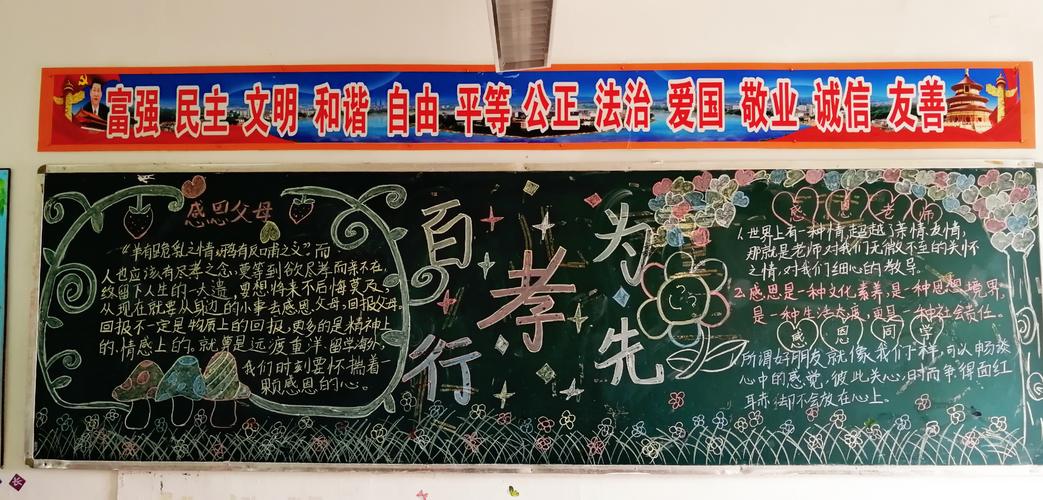 富强 民主 文明 和谐 自由 平等 公正 法治 爱国 敬业 诚信 友善
感恩父母
“羊有跪乳之情,鸦有反哺之义”而
人也应该有尽孝之念,莫等到欲尽孝而亲不在,
终留下人生的一大遗,要想将来不后悔莫及,
从现在就要从身边的小事去感恩父母,回报父母。
回报不一定是物质上的回报,更多的是精神上
的,情感上的。就算是远渡重洋,留学海外,
我们时刻要怀揣着一
颗感恩的心。
百行
孝
为先
感恩老师
1.世界上有一种情,超越了亲情、友情,
那就是老师对我们无微不至的关怀
之情,对我们细心的教导。
2.感恩是一种文化素养,是一种思想境界,
是一种生活态度,更是一种社会责任。
感恩同学
1.所谓好朋友就像我们一样,可以畅谈
心中的感觉,彼此关心,时而争得面红
耳赤,却不会放在心上。
长